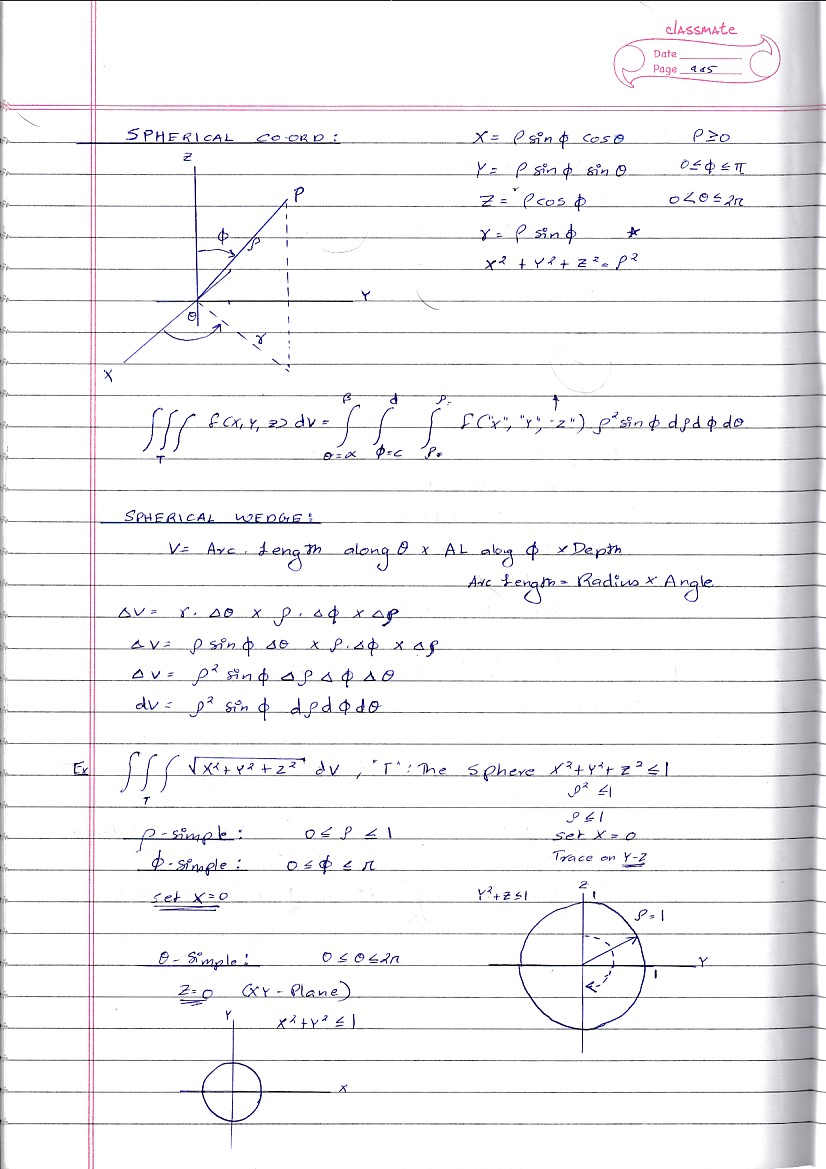 classmate
Date
Page 125
SPHERICAL CO-ORD:
X = ρ sin ϕ cos θ ρ ≥ 0
Y = ρ sin ϕ sin θ 0 ≤ ϕ ≤ π
Z = ρ cos ϕ 0 < θ ≤ 2π
r = ρ sin ϕ *
X² + Y² + Z² = ρ²
Z
P
ϕ
ρ
Y
θ
r
X
∭_T f(X, Y, Z) dV = ∫_{θ=α}^{β} ∫_{ϕ=c}^{d} ∫_{ρ=}^{ρ=} f("X", "Y", "Z") ρ² sin ϕ dρ dϕ dθ
SPHERICAL WEDGE:
V = Arc. Length along θ × AL along ϕ × Depth
Arc Length = Radius × Angle
ΔV = r. Δθ × ρ. Δϕ × Δρ
ΔV = ρ sin ϕ Δθ × ρ. Δϕ × Δρ
ΔV = ρ² sin ϕ Δρ Δϕ Δθ
dV = ρ² sin ϕ dρ dϕ dθ
Ex ∭_T √(X² + Y² + Z²) dV, "T": The sphere X² + Y² + Z² ≤ 1
ρ² ≤ 1
ρ ≤ 1
ρ-simple: 0 ≤ ρ ≤ 1 set X = 0
ϕ-simple: 0 ≤ ϕ ≤ π Trace on Y-Z
set X = 0 Y² + Z ≤ 1
Z
1
ρ = 1
Y
1
θ-simple: 0 ≤ θ ≤ 2π
Z = 0 (XY-Plane)
X² + Y² ≤ 1
Y
X